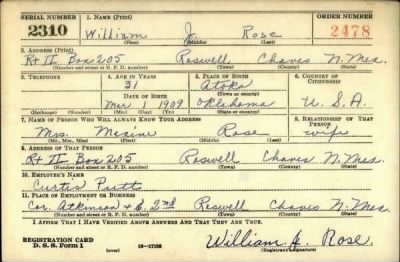 SERIAL NUMBER 1. NAME (Print) ORDER NUMBER
2310 William J. Rose 2478
(First) (Middle) (Last)
2. ADDRESS (Print)
Rt II Box 205 Roswell Chaves N. Mex.
(Number and street or R. F. D. number) (Town) (County) (State)
3. TELEPHONE 4. AGE IN YEARS 5. PLACE OF BIRTH 6. COUNTRY OF CITIZENSHIP
31 Atoka
DATE OF BIRTH (Town or county)
Mar 1 1909 Oklahoma U.S.A.
(Exchange) (Number) (Mo.) (Day) (Yr.) (State or country)
7. NAME OF PERSON WHO WILL ALWAYS KNOW YOUR ADDRESS 8. RELATIONSHIP OF THAT PERSON
Mrs. Maxine Rose wife
(Mr., Mrs., Miss) (First) (Middle) (Last)
9. ADDRESS OF THAT PERSON
Rt II Box 205 Roswell Chaves N. Mex
(Number and street or R. F. D. number) (Town) (County) (State)
10. EMPLOYER'S NAME
Curtis Pratt
11. PLACE OF EMPLOYMENT OR BUSINESS
Cor. Atkinson + E. 2nd Roswell Chaves N. Mex
(Number and street or R. F. D. number) (Town) (County) (State)
I AFFIRM THAT I HAVE VERIFIED ABOVE ANSWERS AND THAT THEY ARE TRUE.
REGISTRATION CARD
D. S. S. Form 1 (over) William J. Rose.
(Registrant's signature)